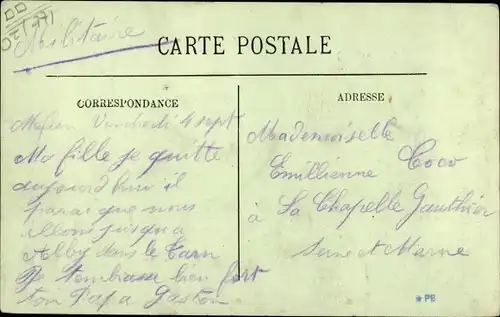 Militaire
CARTE POSTALE
CORRESPONDANCE
ADRESSE
Vendredi 4 sept
Ma fille je quitte
aujourd hui il
parai que nous
allons jusqu a
Alby dans le Tarn
Je tembrasse bien fort
ton Papa Gaston
Mademoiselle
Emillienne Coco
à La Chapelle Gauthier
Seine et Marne
PB